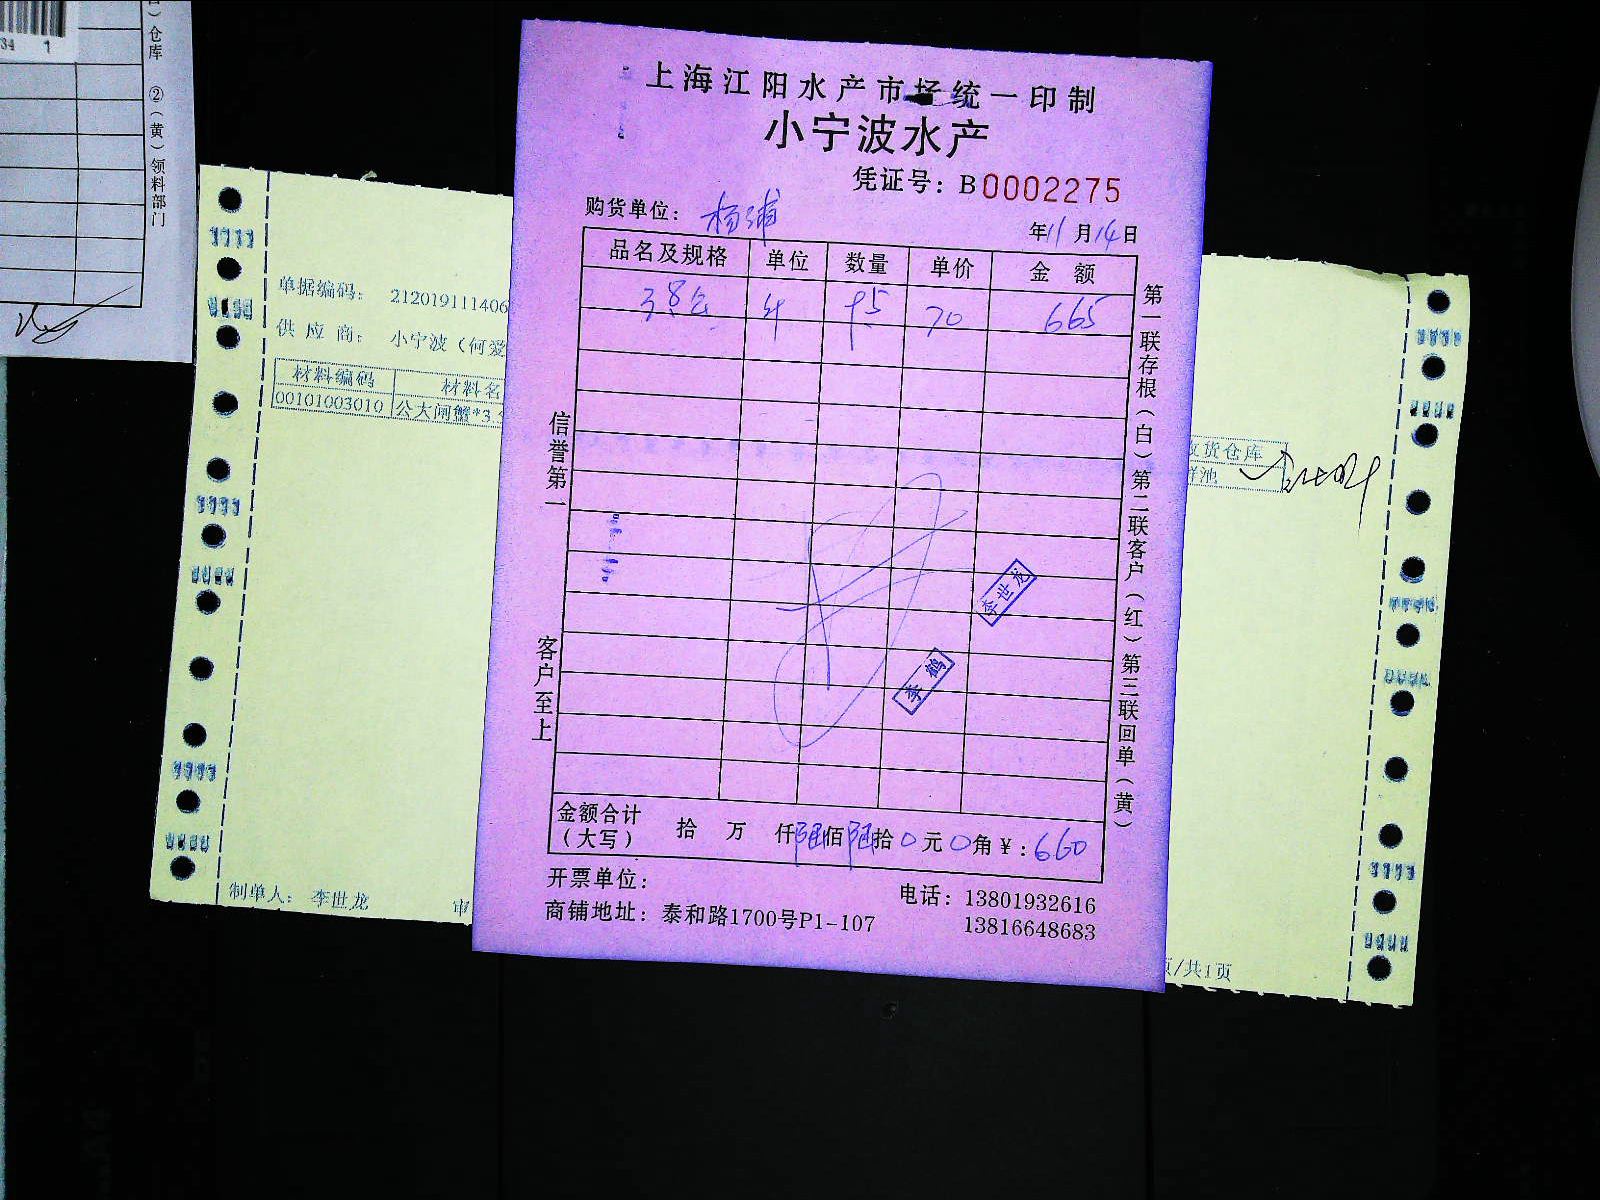 34 1
仓库 ②（黄）领料部门
上海江阳水产市场统一印制
小宁波水产
凭证号：B0002275
购货单位：杨浦
年11月14日
品名及规格 单位 数量 单价 金额
3.8公 斤 9.5 70 665
金额合计（大写） 拾 万 仟陆佰陆拾0元0角¥：660
开票单位：
电话：13801932616
商铺地址：泰和路1700号P1-107
13816648683
信誉第一
客户至上
第一联存根（白）第二联客户（红）第三联回单（黄）
李世龙
李鹤
单据编码： 212019111406
供应商： 小宁波（何爱
材料编码 材料名
00101003010 公大闸蟹*3.
货仓库
鲜池
制单人： 李世龙
审
页/共1页